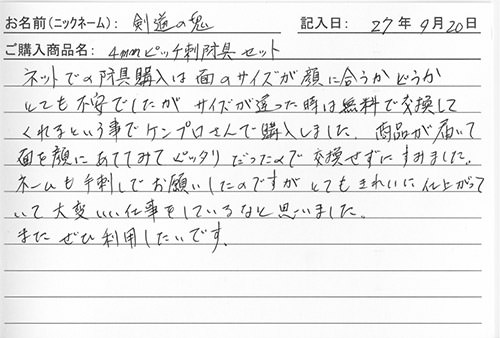 お名前(ニックネーム): 剣道の鬼 記入日: 27年 9月20日
ご購入商品名: 4mmピッチ刺防具セット
ネットでの防具購入は面のサイズが顔に合うかどうか
とても不安でしたが サイズが違った時は無料で交換して
くれるという事でケンプロさんで購入しました。商品が届いて
面を顔にあててみてピッタリだったので交換せずにすみました。
ネームも手刺しでお願いしたのですがとてもきれいに仕上がって
いて大変いい仕事をしているなと思いました。
またぜひ利用したいです。